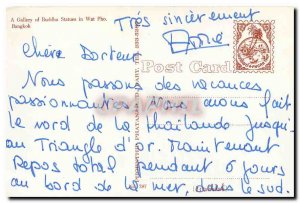 A Gallery of Buddha Statues in Wat Pho.
Bangkok
Très sincèrement
Post Card
Chère Docteur
Nous passons des vacances
passionnantes. Nous avons fait
le nord de la Thaïlande jusqu'
au Triangle d'or. Maintenant
Repos total pendant 6 jours
au bord de la mer, dans le sud.